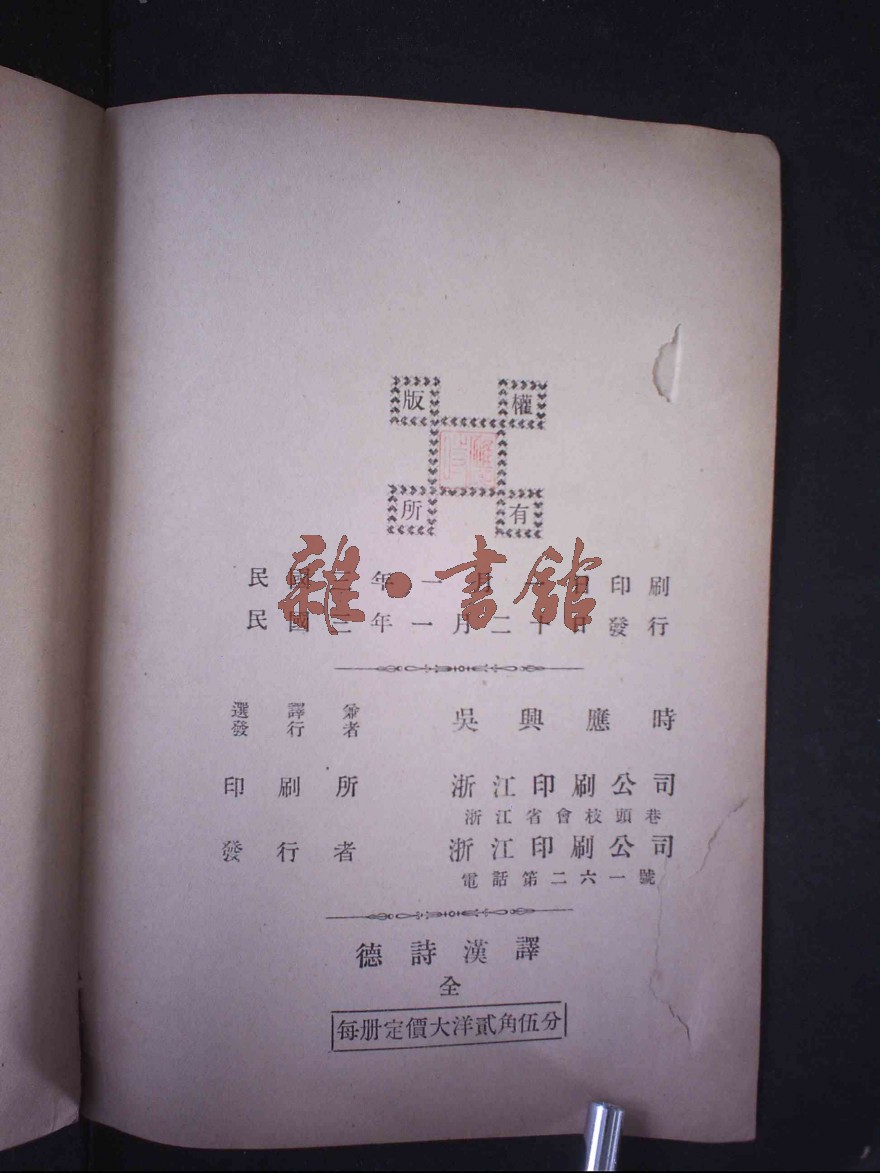 版權
所有
雜·書館
民國三年一月一日印刷
民國三年一月二十日發行
選譯兼
發行者
吳興應時
印刷所 浙江印刷公司
浙江省會枝頭巷
發行者 浙江印刷公司
電話第二六一號
德詩漢譯
全
每册定價大洋貳角伍分